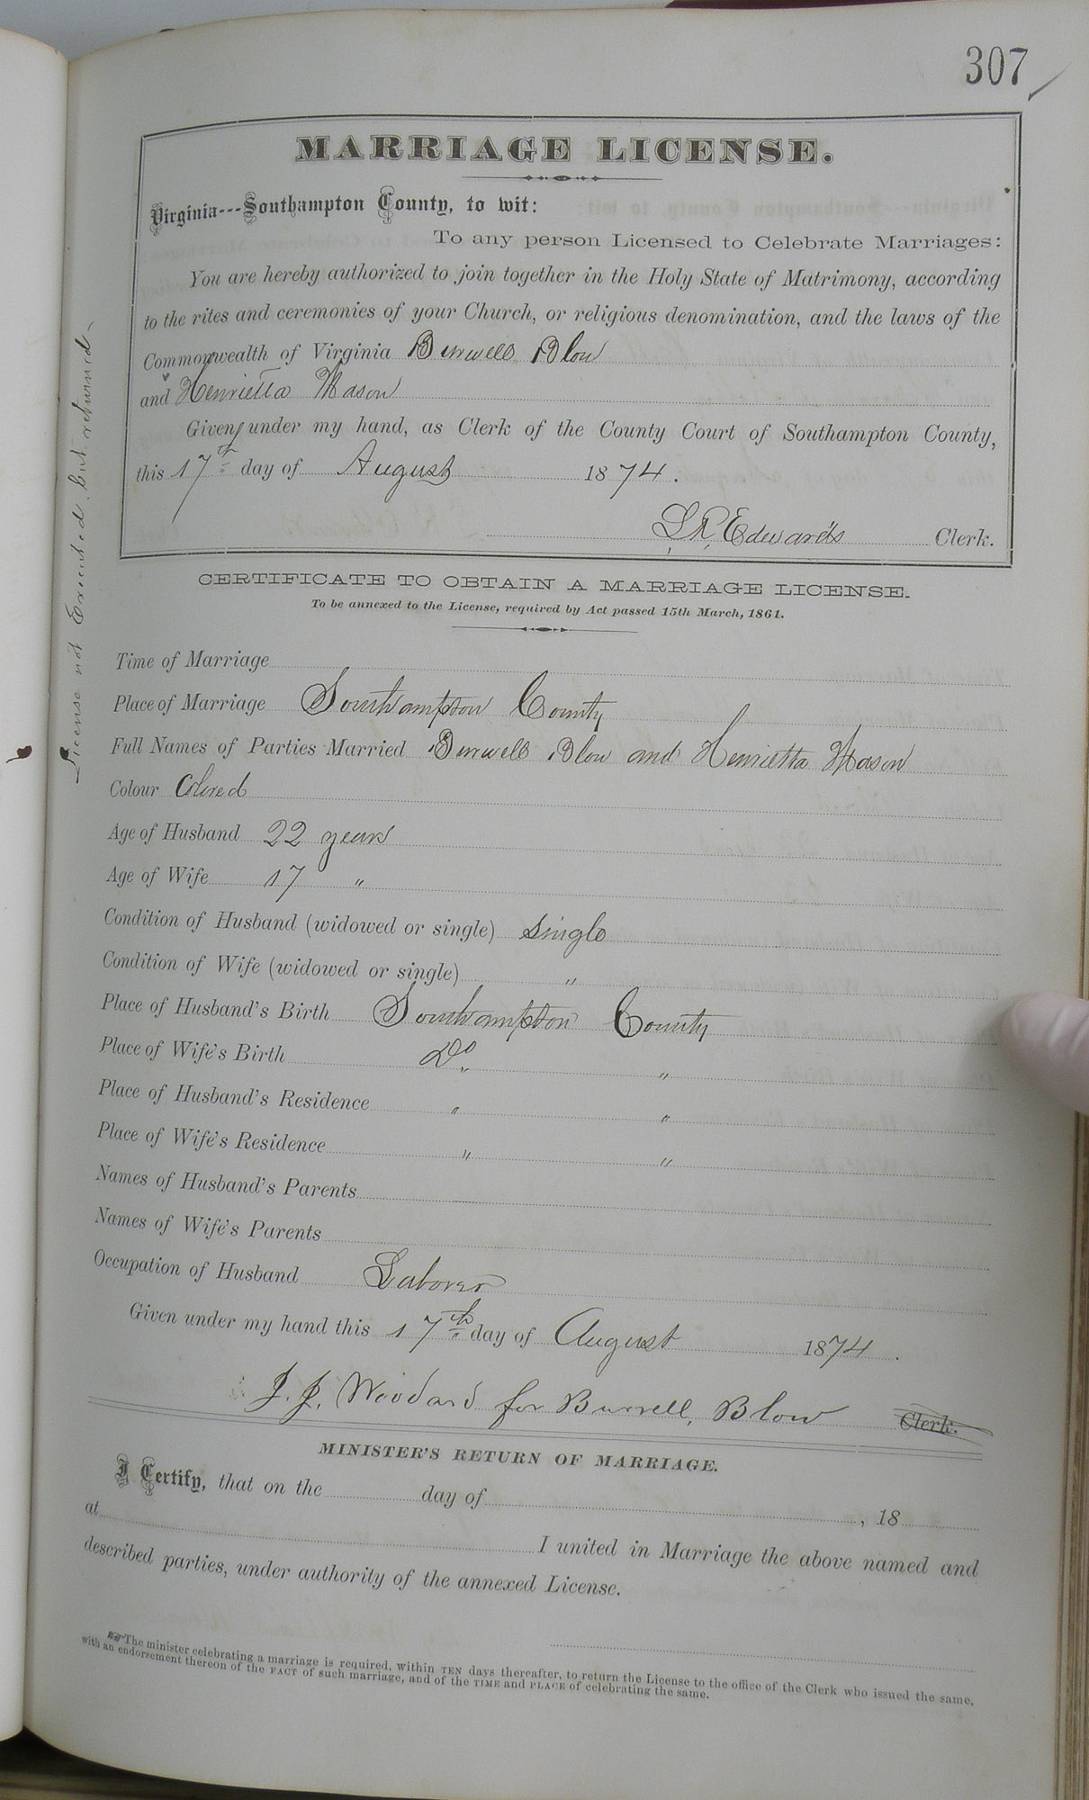 307
MARRIAGE LICENSE.
Virginia---Southampton County, to wit:
To any person Licensed to Celebrate Marriages:
You are hereby authorized to join together in the Holy State of Matrimony, according
to the rites and ceremonies of your Church, or religious denomination, and the laws of the
Commonwealth of Virginia Burwell Blow
and Henrietta Mason
Given under my hand, as Clerk of the County Court of Southampton County,
this 17th day of August 1874.
L. R. Edwards Clerk.
License not Executed, but returned
CERTIFICATE TO OBTAIN A MARRIAGE LICENSE.
To be annexed to the License, required by Act passed 15th March, 1861.
Time of Marriage
Place of Marriage Southampton County
Full Names of Parties Married Burwell Blow and Henrietta Mason
Colour Colored
Age of Husband 22 years
Age of Wife 17 "
Condition of Husband (widowed or single) Single
Condition of Wife (widowed or single) "
Place of Husband's Birth Southampton County
Place of Wife's Birth Do. "
Place of Husband's Residence " "
Place of Wife's Residence " "
Names of Husband's Parents
Names of Wife's Parents
Occupation of Husband Laborer
Given under my hand this 17th day of August 1874.
J. J. Woodard for Burrell, Blow Clerk.
MINISTER'S RETURN OF MARRIAGE.
I Certify, that on the day of , 18
at I united in Marriage the above named and
described parties, under authority of the annexed License.
☞ The minister celebrating a marriage is required, within TEN days thereafter, to return the License to the office of the Clerk who issued the same,
with an endorsement thereon of the FACT of such marriage, and of the TIME and PLACE of celebrating the same.